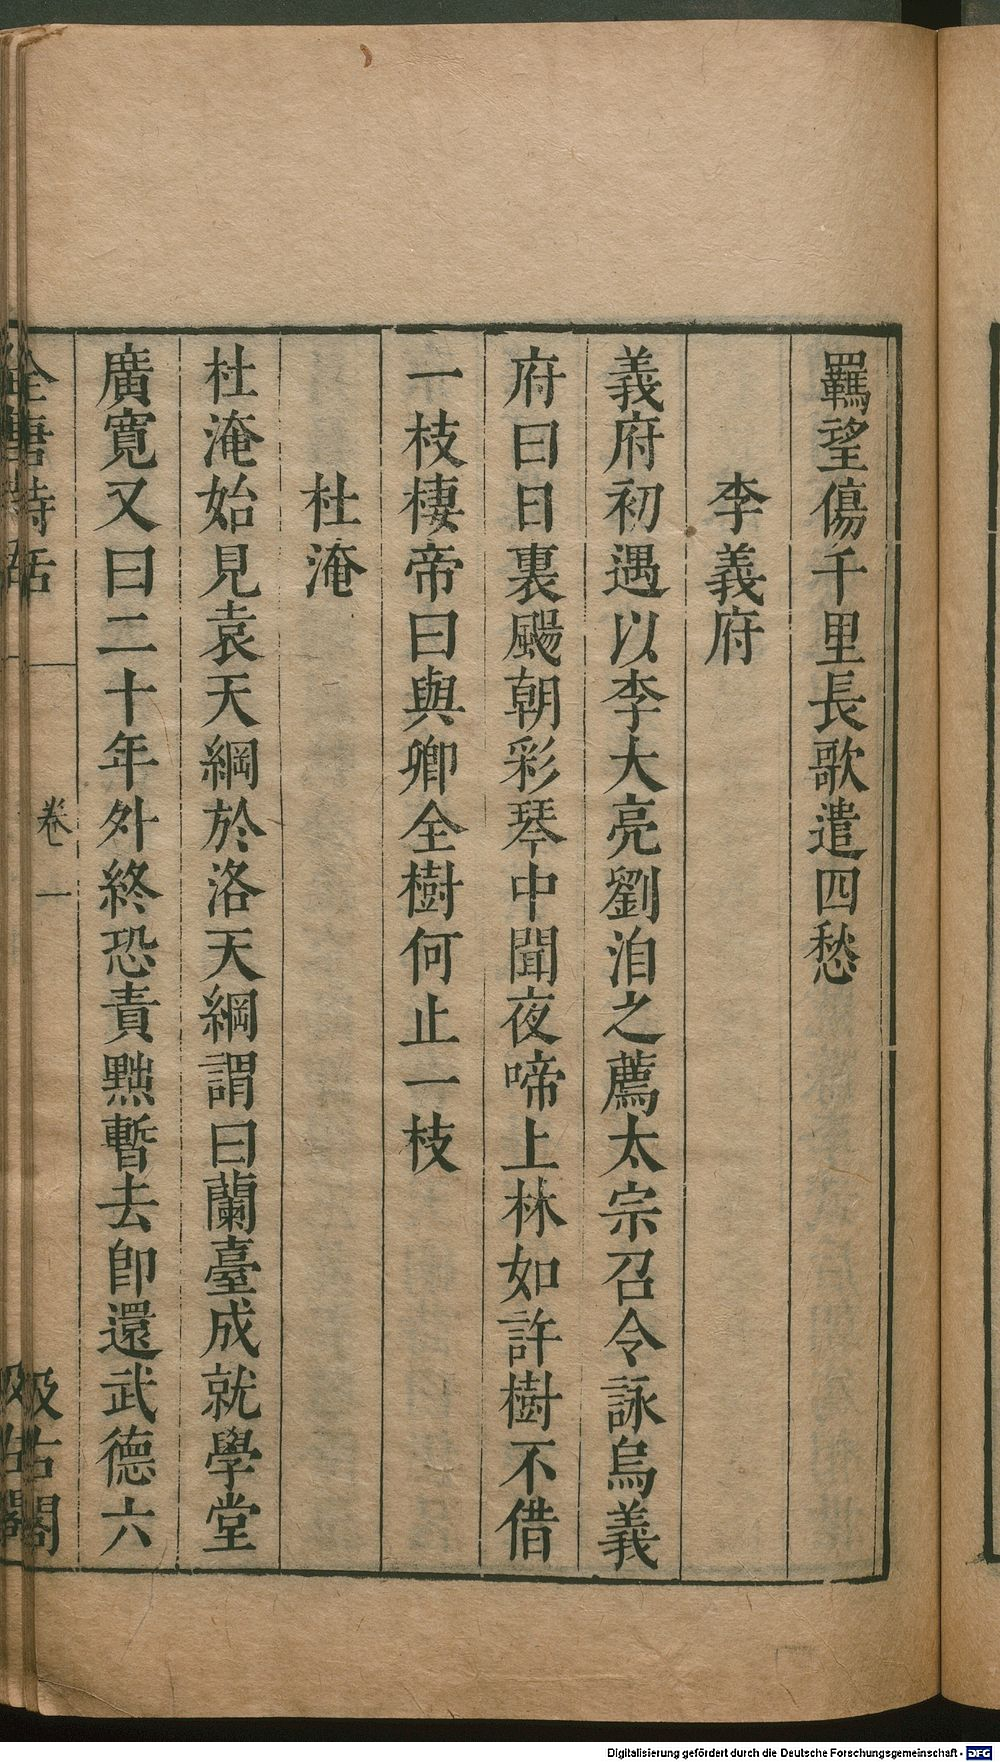 羈望傷千里長歌遣四愁
李義府
義府初遇以李大亮劉洎之薦太宗召令詠烏義
府曰日裏颺朝彩琴中聞夜啼上林如許樹不借
一枝棲帝曰與卿全樹何止一枝
杜淹
杜淹始見袁天綱於洛天綱謂曰蘭臺成就學堂
廣寬又曰二十年外終恐責黜暫去卽還武德六
全唐詩話
卷一
汲古閣
Digitalisierung gefördert durch die Deutsche Forschungsgemeinschaft - DFG